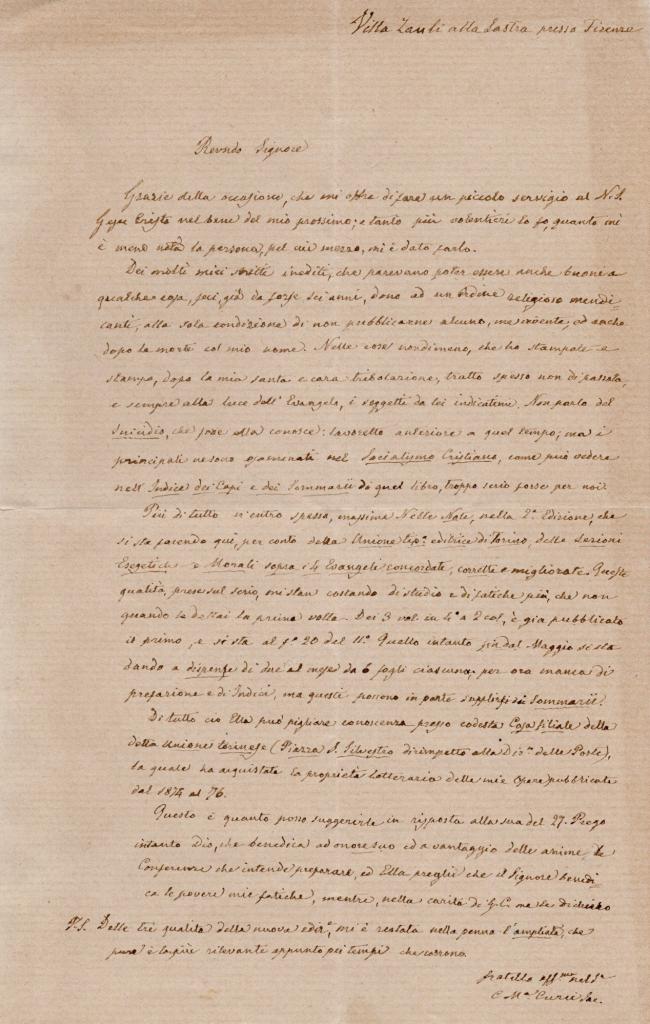 Villa Zauli alla Lastra presso Firenze
Revndo Signore
Grazie della occasione, che mi offre di fare un piccolo servigio al N.S.
Gesù Cristo nel bene del mio prossimo; e tanto più volentieri lo fo, quanto mi
è meno nota la persona, pel cui mezzo, mi è dato farlo.
Dei molti miei scritti inediti, che parevano poter essere anche buoni a
qualche cosa, feci, già da forse sei anni, dono ad un Ordine religioso mendi
canti, alla sola condizione di non pubblicarne alcuno, me vivente, ed anche
dopo la morte col mio nome. Nelle cose nondimeno, che ho stampate e
stampo, dopo la mia santa e cara tribolazione, tratto spesso non di passata,
e sempre alla luce dell' Evangelo, i soggetti da lei indicatimi. Non parlo del
Suicidio, che forse Ella conosce: lavoretto anteriore a quel tempo; ma i
principali ne sono esaminati nel Socialismo Cristiano, come può vedere
nell'Indice dei Capi e dei Sommarii di quel libro, troppo serio forse per noi.
Più di tutto vi entro spesso, massime Nelle Note, nella 2ª Edizione, che
si sta facendo qui, per conto della Unione tipª editrice di Torino, delle Lezioni
Esegetiche e Morali sopra i 4 Evangeli concordate, corrette e migliorate. Queste
qualità, prese sul serio, mi stan costando di studio e di fatiche più, che non
quando le dettai la prima volta. Dei 3 vol. in 4º a 2 col., è già pubblicato
il primo, e si sta al fº 20 del IIº. Quello intanto fin dal Maggio si sta
dando a dispense di due al mese da 6 fogli ciascuna: per ora manca di
prefazione e di Indici, ma questi possono in parte supplirsi dai Sommarii.
Di tutto ciò Ella può pigliare conoscenza presso codesta Casa filiale della
detta Unione torinese (Piazza S. Silvestro dirimpetto alla Dirne delle Poste),
la quale ha acquistata la proprietà letteraria delle mie Opere pubblicate
dal 1874 al 76.
Questo è quanto posso suggerirle in risposta alla sua del 27. Prego
intanto Dio, che benedica ad onore suo ed a vantaggio delle anime, le
Conferenze che intende preparare, ed Ella preghi che il Signore benedi
ca le povere mie fatiche, mentre, nella carità di G.C. me le dichiaro
P.S. Delle tre qualità della nuova edizª, mi è restata nella penna l'ampliata, che
pure è la più rilevante appunto pei tempi che corrono.
fratello affmo nel
C Mª Curci Sac.